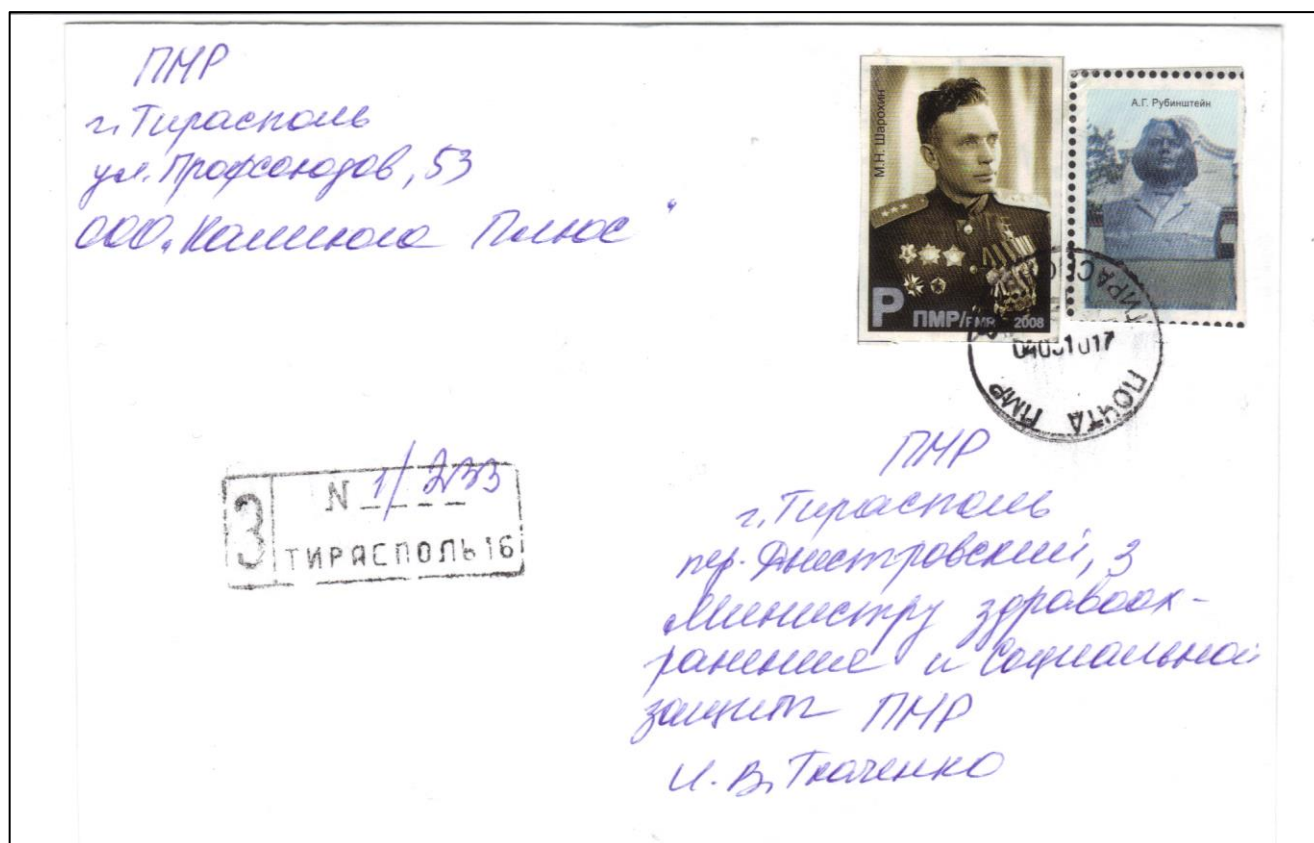 ПМР
г. Тирасполь
ул. Профсоюзов, 53
ООО "Калинка Плюс"
М.Н. Шарохин
Р ПМР/PMR 2008
А.Г. Рубинштейн
ТИРАСПОЛЬ
04031017
ПОЧТА ПМР
З N 1/233
ТИРАСПОЛЬ 16
ПМР
г. Тирасполь
пер. Днестровский, 3
Министру здравоох-
ранения и Социальной
защиты ПМР
И. В. Ткаченко